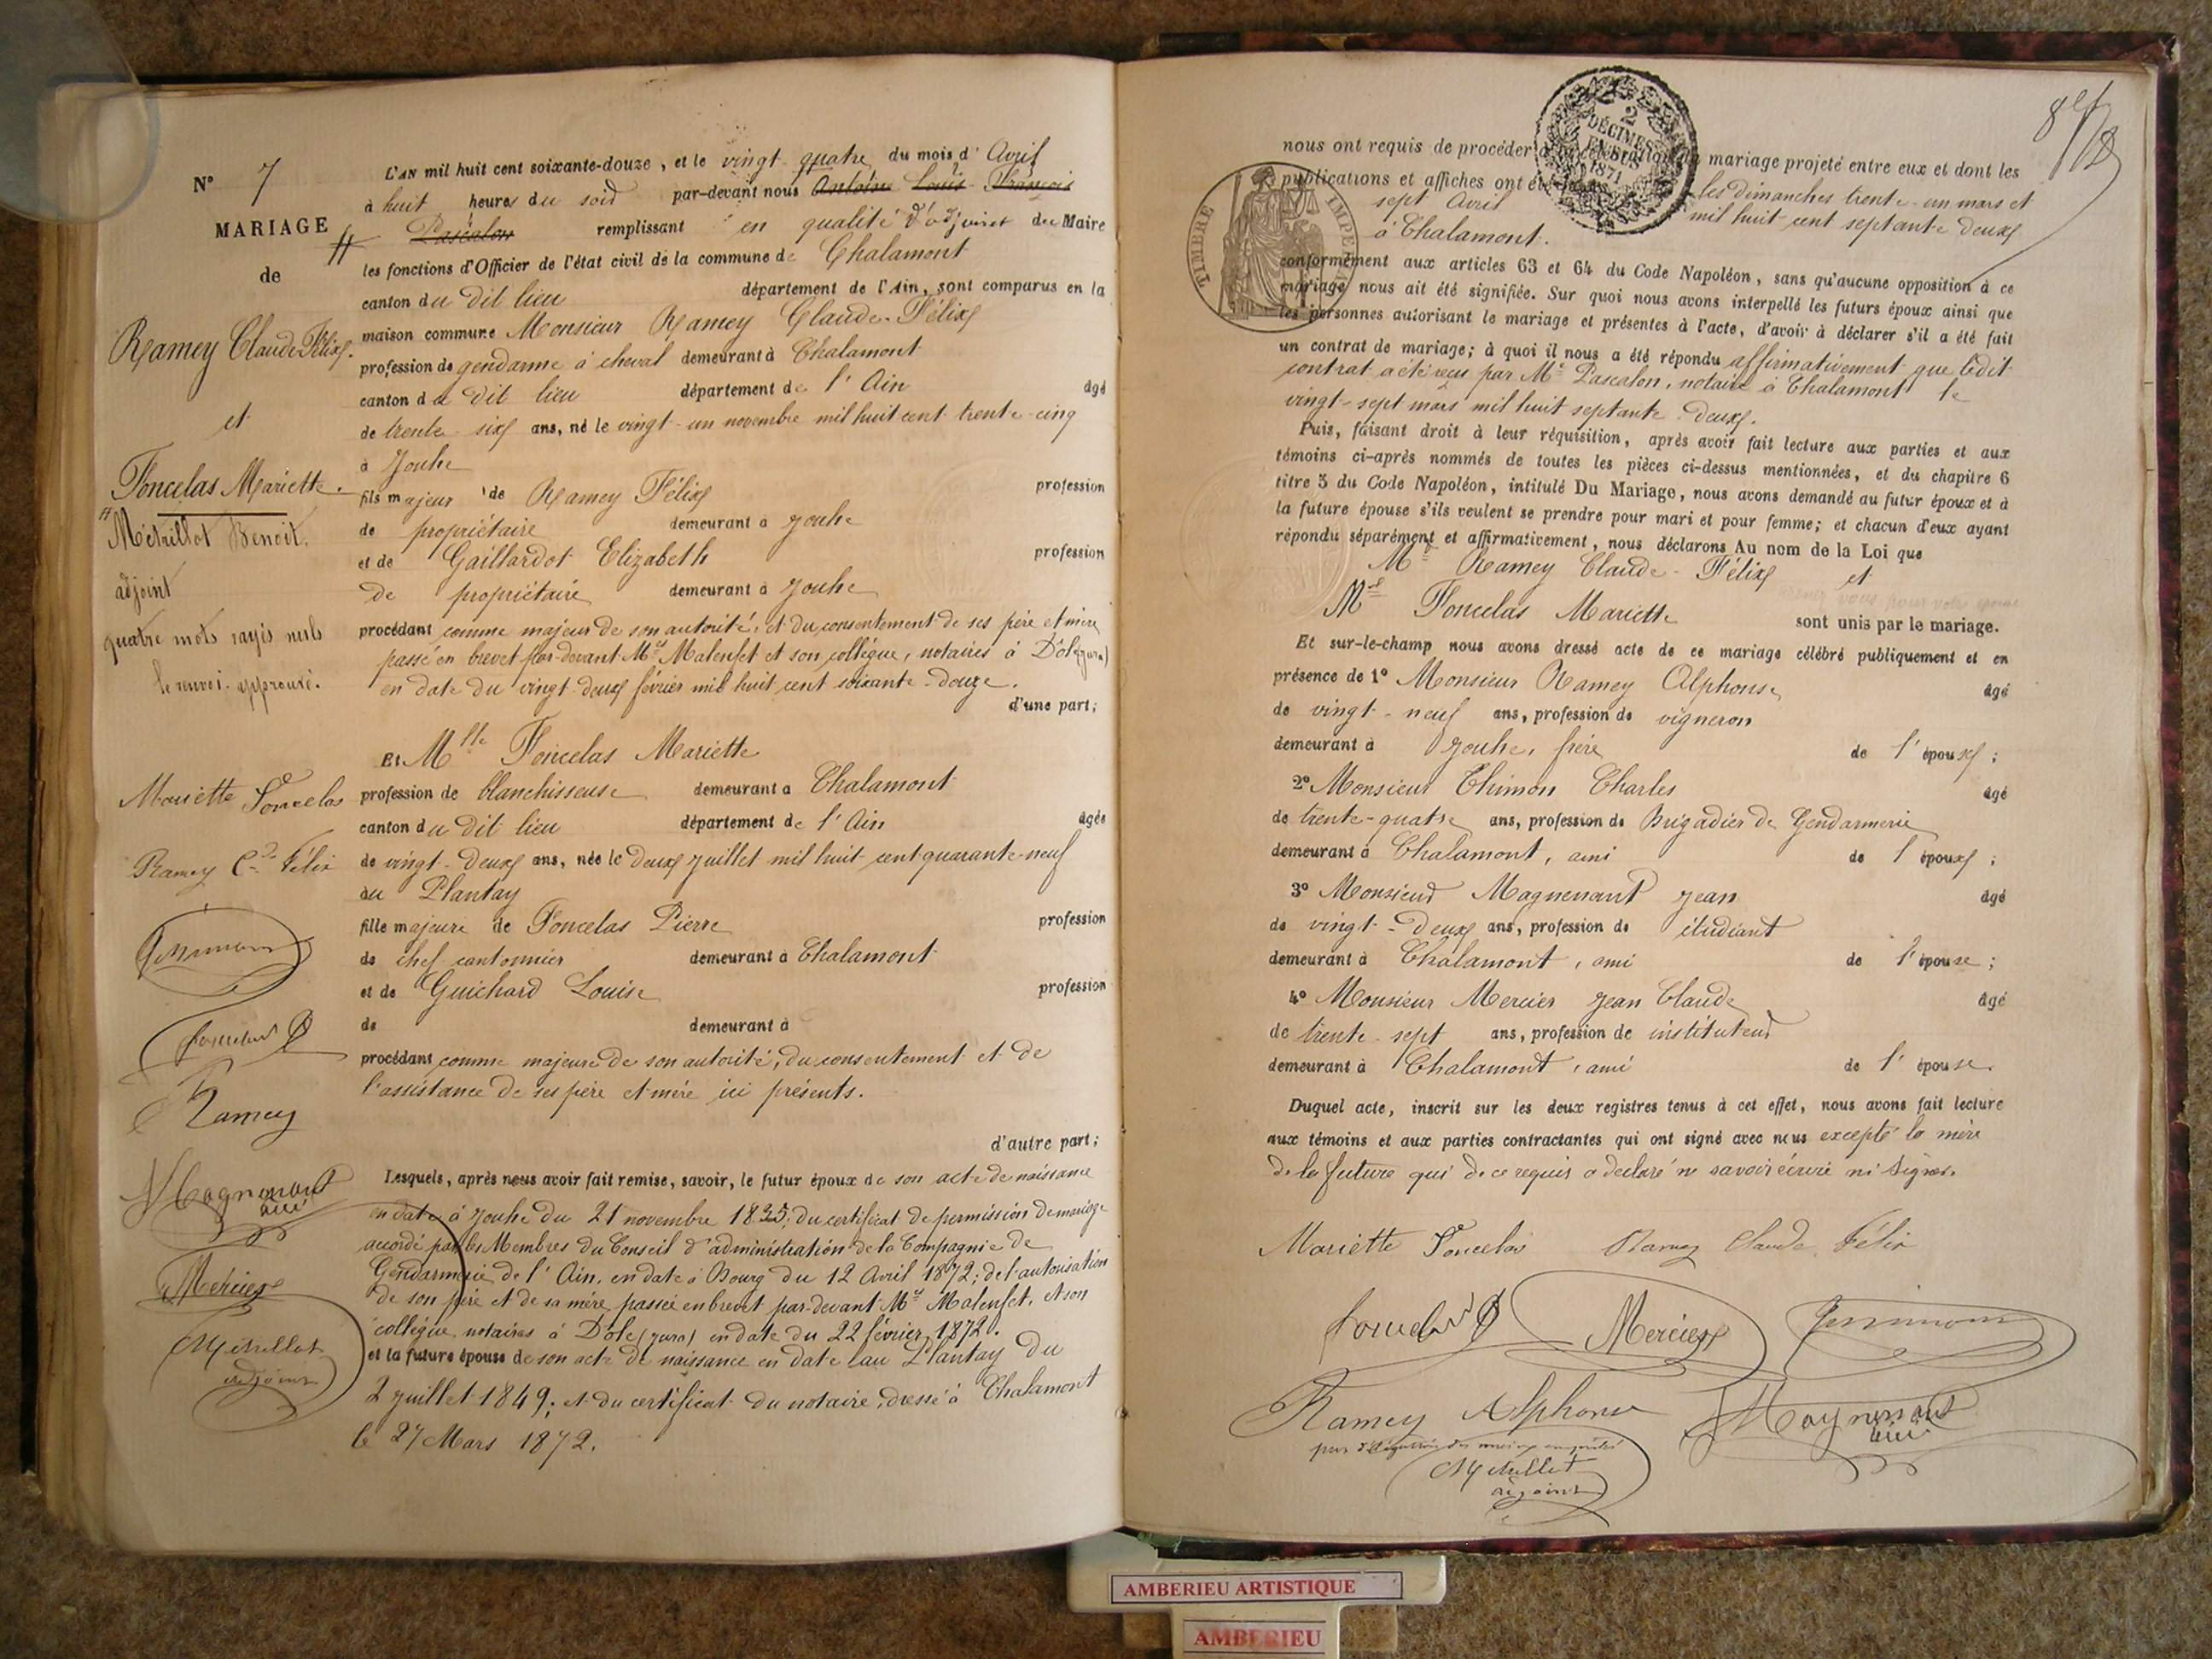 N° 7
MARIAGE
de
Ramey Claude Félix.
et
Foncelas Mariette.
# Métrillot Benoit.
adjoint
quatre mots rayés nuls
le renvoi approuvé.
Mariette Foncelas
Ramey Cde Félix
Ramey
Magnenant
Mercier
Métrillot
adjoint
L'AN mil huit cent soixante-douze, et le vingt-quatre du mois d'Avril
à huit heures du soir par-devant nous Antoine Louis François
# Pascalon remplissant en qualité d'adjoint du Maire
les fonctions d'Officier de l'état civil de la commune de Chalamont
canton du dit lieu département de l'Ain, sont comparus en la
maison commune Monsieur Ramey Claude-Félix
profession de gendarme à cheval demeurant à Chalamont
canton du dit lieu département de l'Ain âgé
de trente-six ans, né le vingt-un novembre mil huit cent trente-cinq
à Jouhe
fils majeur de Ramey Félix profession
de propriétaire demeurant à Jouhe
et de Gaillardot Elizabeth profession
de propriétaire demeurant à Jouhe
procédant comme majeur de son autorité, et du consentement de ses père et mère
passé en brevet par-devant Mes Malenfet et son collègue, notaires à Dôle (Jura)
en date du vingt-deux février mil huit cent soixante-douze.
d'une part;
Et Mlle Foncelas Mariette
profession de blanchisseuse demeurant à Chalamont
canton du dit lieu département de l'Ain âgée
de vingt-deux ans, née le deux juillet mil huit cent quarante-neuf
au Plantay
fille majeure de Foncelas Pierre profession
de chef cantonnier demeurant à Chalamont
et de Guichard Louise profession
de demeurant à
procédant comme majeure de son autorité, du consentement et de
l'assistance de ses père et mère ici présents.
d'autre part;
Lesquels, après nous avoir fait remise, savoir, le futur époux de son acte de naissance
en date à Jouhe du 21 novembre 1835; du certificat de permission de mariage
accordé par les Membres du Conseil d'administration de la Compagnie de
Gendarmerie de l'Ain, en date à Bourg du 12 Avril 1872; de l'autorisation
de son père et de sa mère passée en brevet par-devant Mes Malenfet, et son
collègue, notaires à Dôle (Jura) en date du 22 février 1872.
et la future épouse de son acte de naissance en date au Plantay du
2 juillet 1849; et du certificat du notaire, dressé à Chalamont
le 27 Mars 1872.
nous ont requis de procéder à la célébration du mariage projeté entre eux et dont les
publications et affiches ont été faites les dimanches trente-un mars et
sept Avril mil huit-cent septante deux
à Chalamont.
2 DÉCIMES EN SUS 1871
TIMBRE IMPÉRIAL
conformément aux articles 63 et 64 du Code Napoléon, sans qu'aucune opposition à ce
mariage nous ait été signifiée. Sur quoi nous avons interpellé les futurs époux ainsi que
les personnes autorisant le mariage et présentes à l'acte, d'avoir à déclarer s'il a été fait
un contrat de mariage; à quoi il nous a été répondu affirmativement que ledit
contrat a été reçu par Me Pascalon, notaire à Chalamont le
vingt-sept mars mil huit septante-deux.
Puis, faisant droit à leur réquisition, après avoir fait lecture aux parties et aux
témoins ci-après nommés de toutes les pièces ci-dessus mentionnées, et du chapitre 6
titre 5 du Code Napoléon, intitulé Du Mariage, nous avons demandé au futur époux et à
la future épouse s'ils veulent se prendre pour mari et pour femme; et chacun d'eux ayant
répondu séparément et affirmativement, nous déclarons Au nom de la Loi que
Mr Ramey Claude-Félix et
Mlle Foncelas Mariette sont unis par le mariage.
Et sur-le-champ nous avons dressé acte de ce mariage célébré publiquement et en
présence de 1° Monsieur Ramey Alphonse âgé
de vingt-neuf ans, profession de vigneron
demeurant à Jouhe, frère de l'époux;
2° Monsieur Thimon Charles âgé
de trente-quatre ans, profession de Brigadier de Gendarmerie
demeurant à Chalamont, ami de l'époux;
3° Monsieur Magnenant Jean âgé
de vingt-deux ans, profession de étudiant
demeurant à Chalamont, ami de l'épouse;
4° Monsieur Mercier Jean Claude âgé
de trente-sept ans, profession de instituteur
demeurant à Chalamont, ami de l'épouse.
Duquel acte, inscrit sur les deux registres tenus à cet effet, nous avons fait lecture
aux témoins et aux parties contractantes qui ont signé avec nous excepté la mère
de la future qui de ce requis a déclaré ne savoir écrire ni signer.
Mariette Foncelas Ramey Claude Félix
Mercier
Ramey Alphonse Magnenant
Métrillot
adjoint
AMBERIEU ARTISTIQUE
AMBERIEU